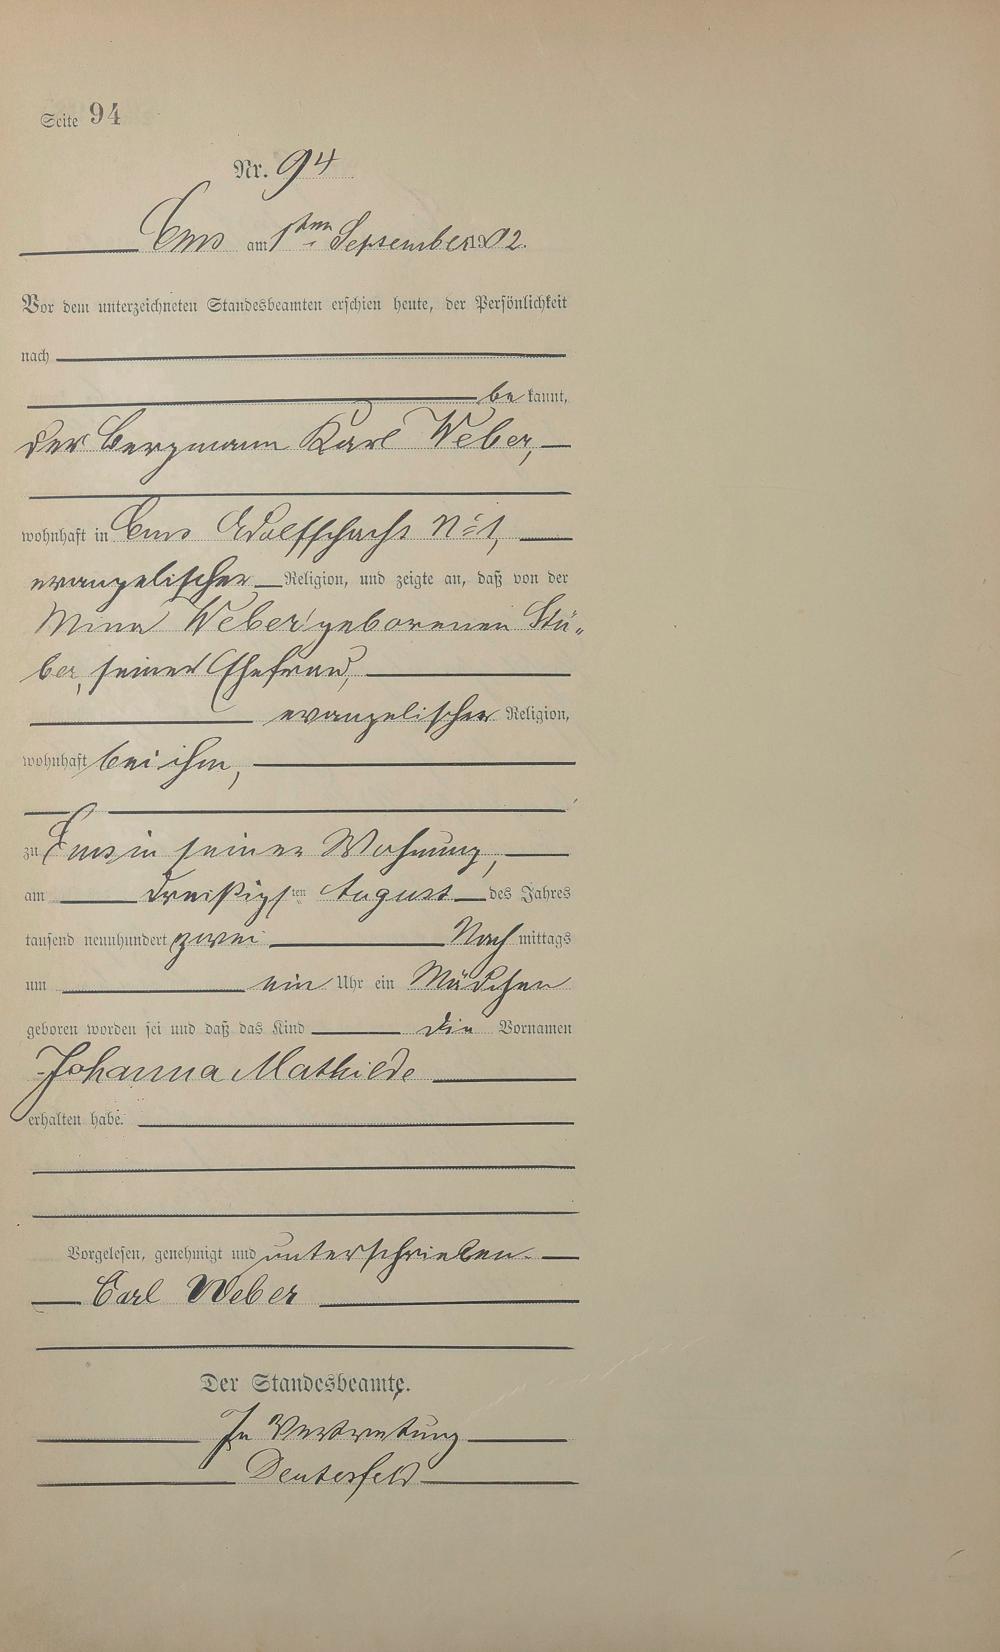 Seite 94
Nr. 94
Ems am 1ten September 1902.
Vor dem unterzeichneten Standesbeamten erschien heute, der Persönlichkeit
nach
be kannt,
der Bergmann Karl Weber,
wohnhaft in Ems Adolfschacht No 1,
evangelischer Religion, und zeigte an, daß von der
Mina Weber geborenen Stü„
ber, seiner Ehefrau,
evangelischer Religion,
wohnhaft bei ihm,
zu Ems in seiner Wohnung,
am dreißigsten August des Jahres
tausend neunhundert zwei Nach mittags
um ein Uhr ein Mädchen
geboren worden sei und daß das Kind die Vornamen
Johanna Mathilde
erhalten habe.
Vorgelesen, genehmigt und unterschrieben.
Carl Weber
Der Standesbeamte.
In Vertretung